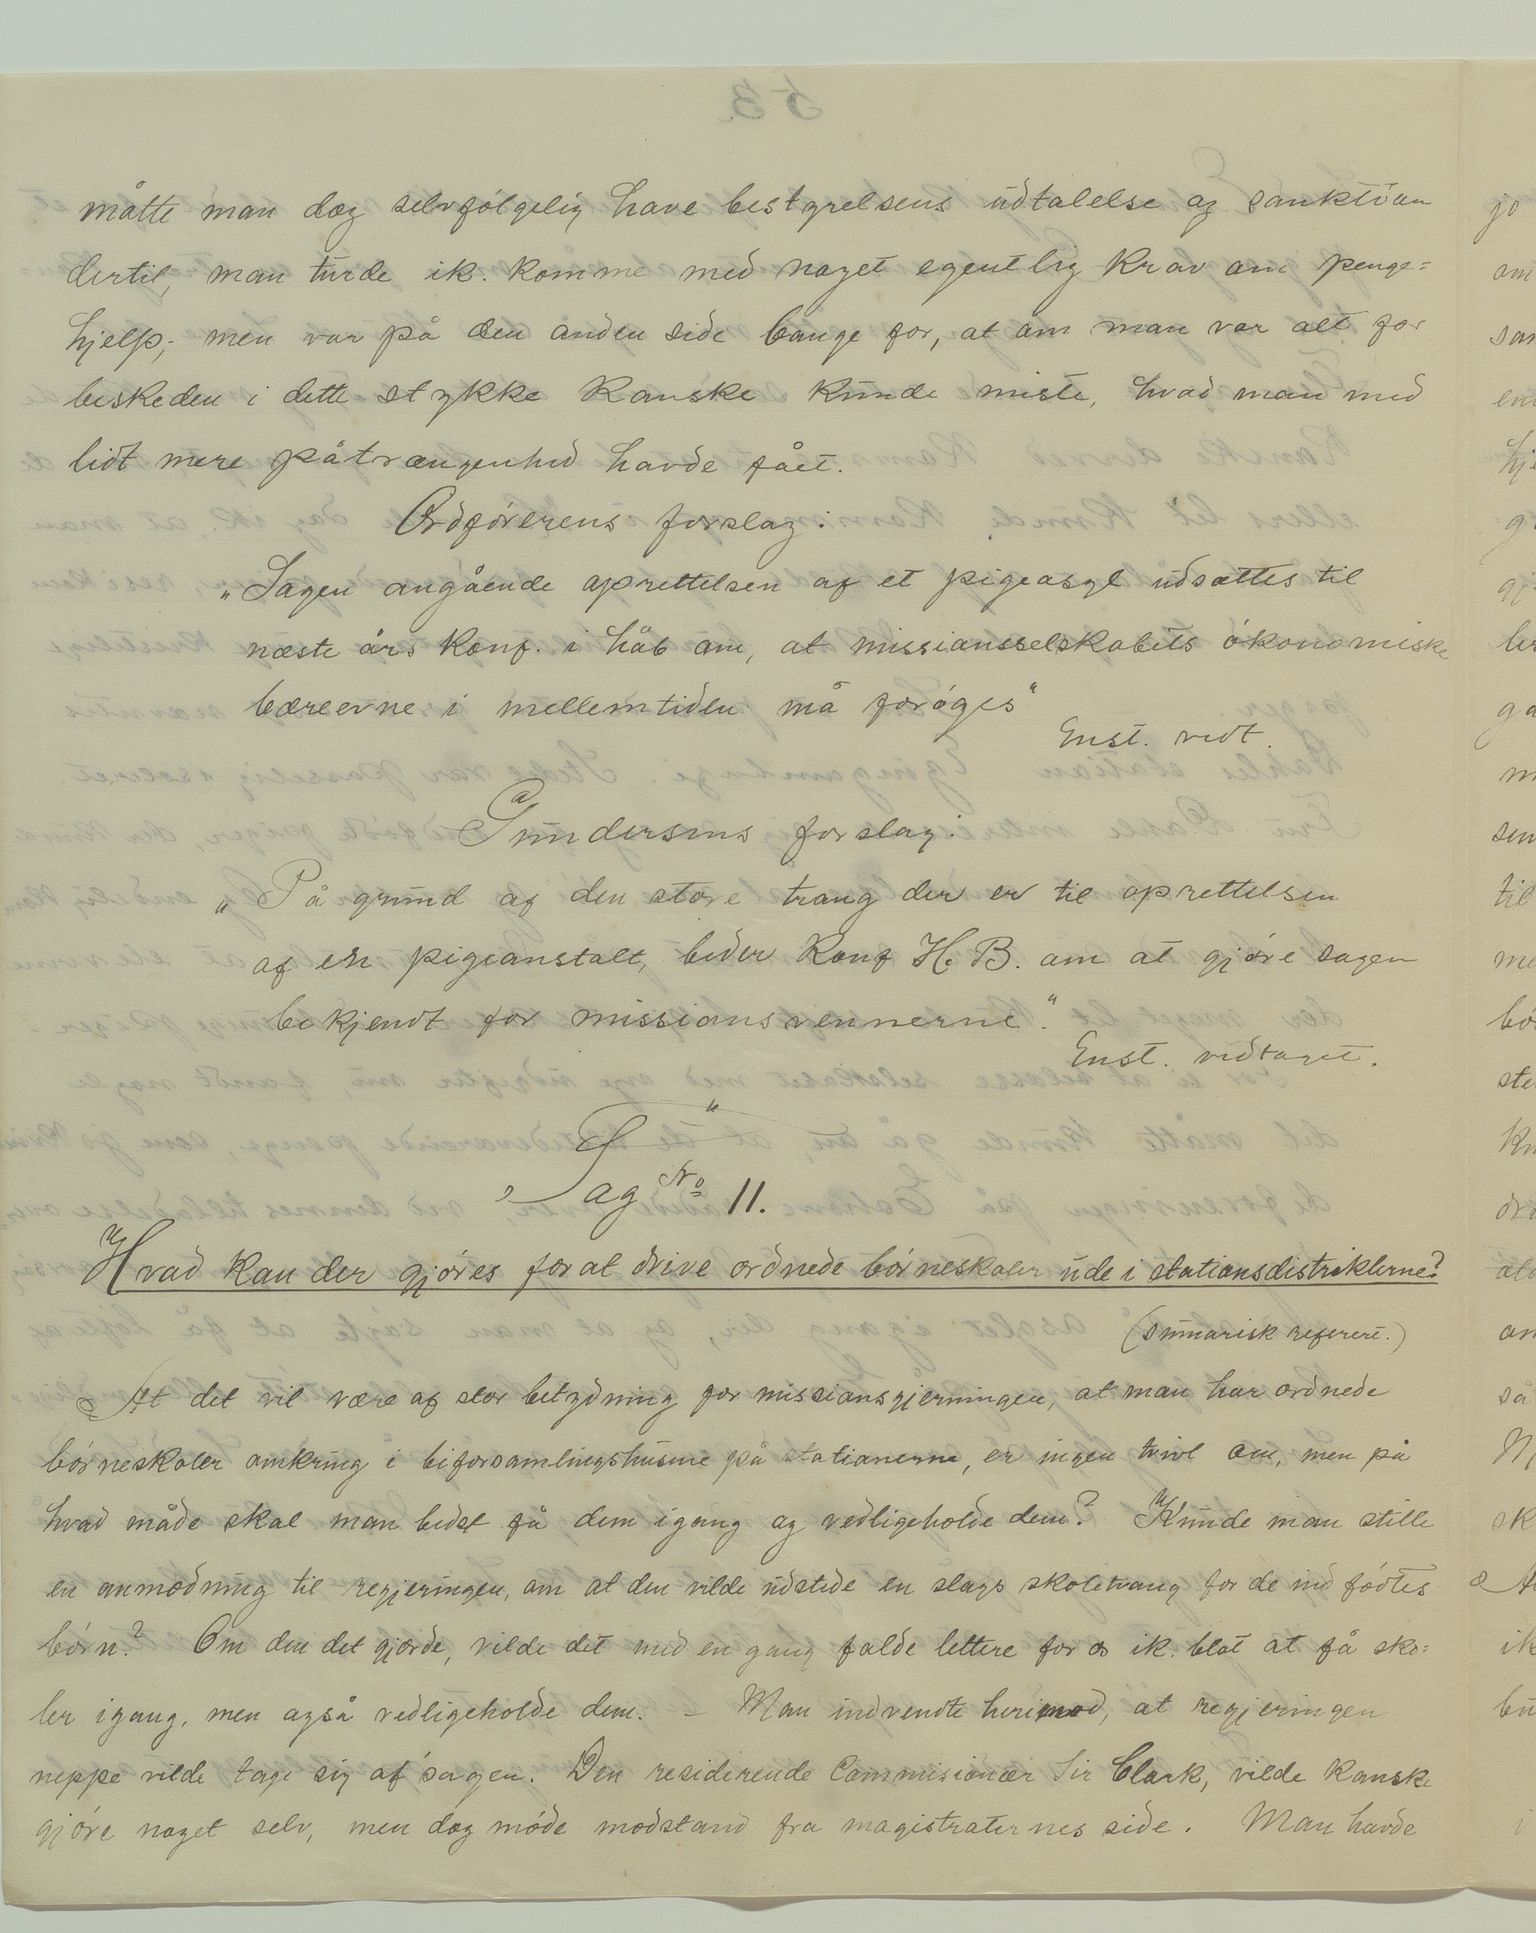 måtte man dog selvfølgelig have bestyrelsens udtalelse og sanktion
dertil, man turde ik. komme med noget egentlig krav om penge=
hjelp; men var på den anden side bange for, at om man var alt for
beskeden i dette stykke kanske kunde miste, hvad man med
lidt mere påtrængenhed havde fået.
Ordførerens forslag:
"Sagen angående oprettelsen af et pigeasyl udsættes til
næste års konf. i håb om, at missionsselskabets økonomiske
bæreevne i mellemtiden må forøges"
Enst. vedt.
Gundersens forslag:
"På grund af den store trang der er til oprettelsen
af en pigeanstalt, beder konf H. B. om at gjøre sagen
bekjendt for missionsvennerne."
Enst. vedtaget.
Sag No 11.
Hvad kan der gjøres for at drive ordnede børneskoler ude i stationsdistrikterne?
(summarisk referert.)
At det vil være af stor betydning for missionsgjerningen, at man har ordnede
børneskoler omkring i biforsamlingshusene på stationerne, er ingen tvivl om, men på
hvad måde skal man bedst få dem igang og vedligeholde dem? Kunde man stille
en anmodning til regjeringen, om at den vilde udstede en slags skoletvang for de indfødtes
børn? Om den det gjorde, vilde det med en gang falde lettere for os ik. blot at få sko=
ler igang, men også vedligeholde dem. – Man indvendte herimod, at regjeringen
neppe vilde tage sig af sagen. Den residerende Commisionær Sir Clark, vilde kanske
gjøre noget selv, men dog møde modstand fra magistraternes side. Man havde